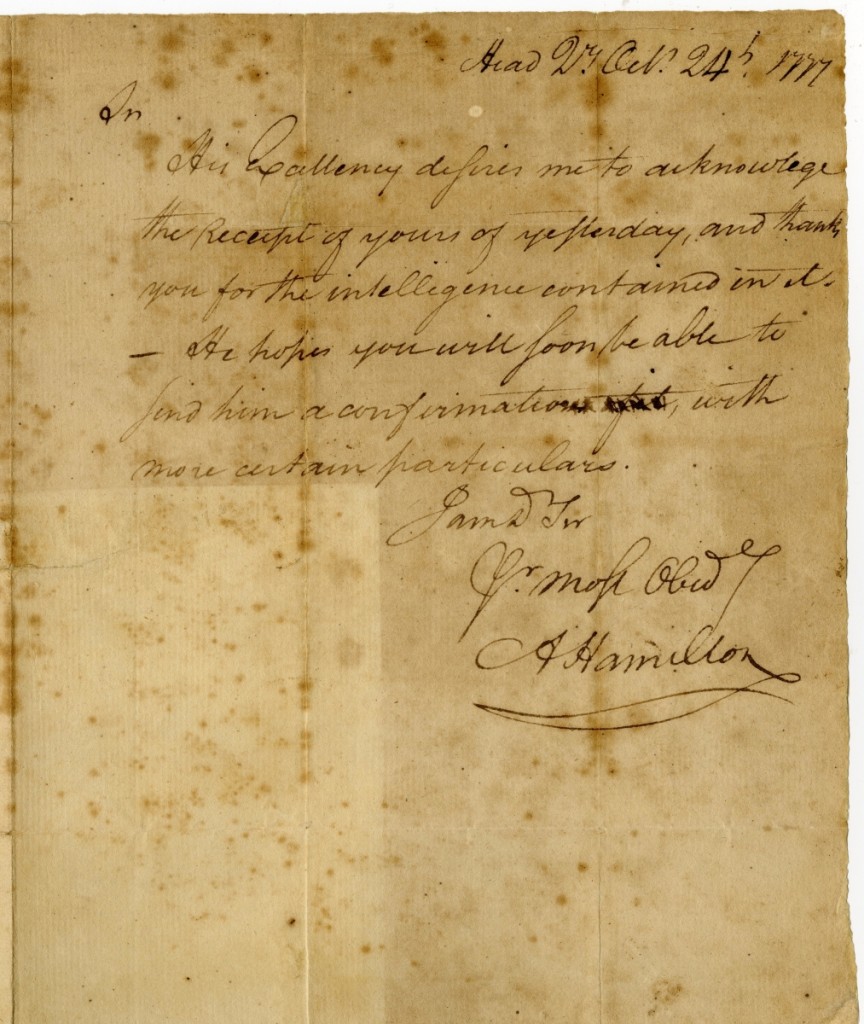 Head Qrs Octr. 24th. 1777
Sir
His Excellency desires me to acknowlege
the receipt of yours of yesterday, and thank
you for the intelligence contained in it.
— He hopes you will soon be able to
send him a confirmation of it, with
more certain particulars.
I am D Sir
Yr. most Obed
A Hamilton